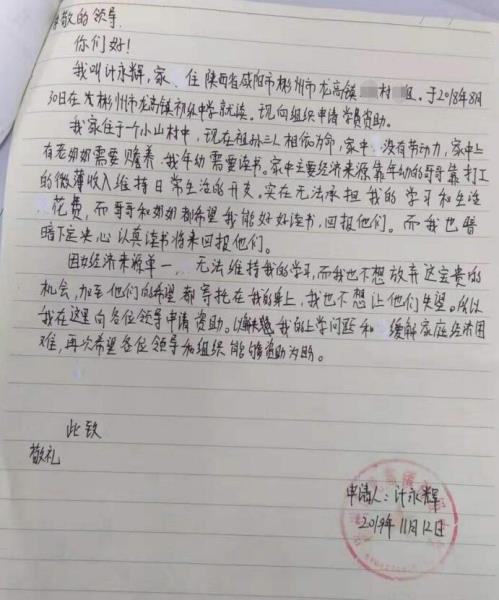 尊敬的领导
你们好!
我叫计永辉,家 住陕西省咸阳市彬州市龙高镇 村 组,于2018年8月
30日在 彬州市龙高镇初级中学就读。现向组织申请学费资助。
我家住于一个小山村中,现在祖孙三人相依为命,家中 没有劳动力,家中上
有老奶奶需要赡养,我年幼需要读书。家中主要经济来源靠年幼的哥哥靠打工
的微薄收入维持日常生活的开支。实在无法承担我的学习和生活
花费,而哥哥和奶奶都希望我能好好读书,回报他们。而我也暗
暗下定决心认真读书将来回报他们。
因经济来源单一 无法维持我的学习,而我也不想放弃这宝贵的
机会,加至他们的希望都寄托在我的身上,我也不想让他们失望。所以
我在这里向各位领导申请资助。以解决我的上学问题和 缓解家庭经济困
难,再次希望各位领导和组织能够资助为盼。
此致
敬礼
申请人:计永辉
2019年11月12日